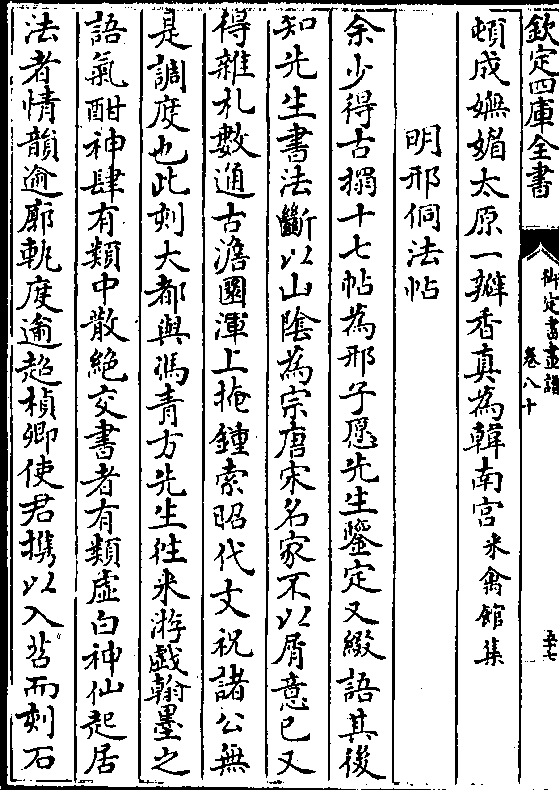 欽定四庫全書
御定書畫譜
卷八十
五十七
頓成嫵媚太原一瓣香真為韓南宫米禽館集
明邢侗法帖
余少得古搨十七帖為邢子愿先生鑒定又綴語其後
知先生書法斷以山隂為宗唐宋名家不以屑意已又
得雜札數通古澹圓渾上掩鍾索昭代文祝諸公無
是調度也此刻大都與馮青方先生徃來游戲翰墨之
語氣酣神肆有類中散絶交書者有類虛白神仙起居
法者情韻逾廓軌度逾超楨卿使君携以入苕而刻石